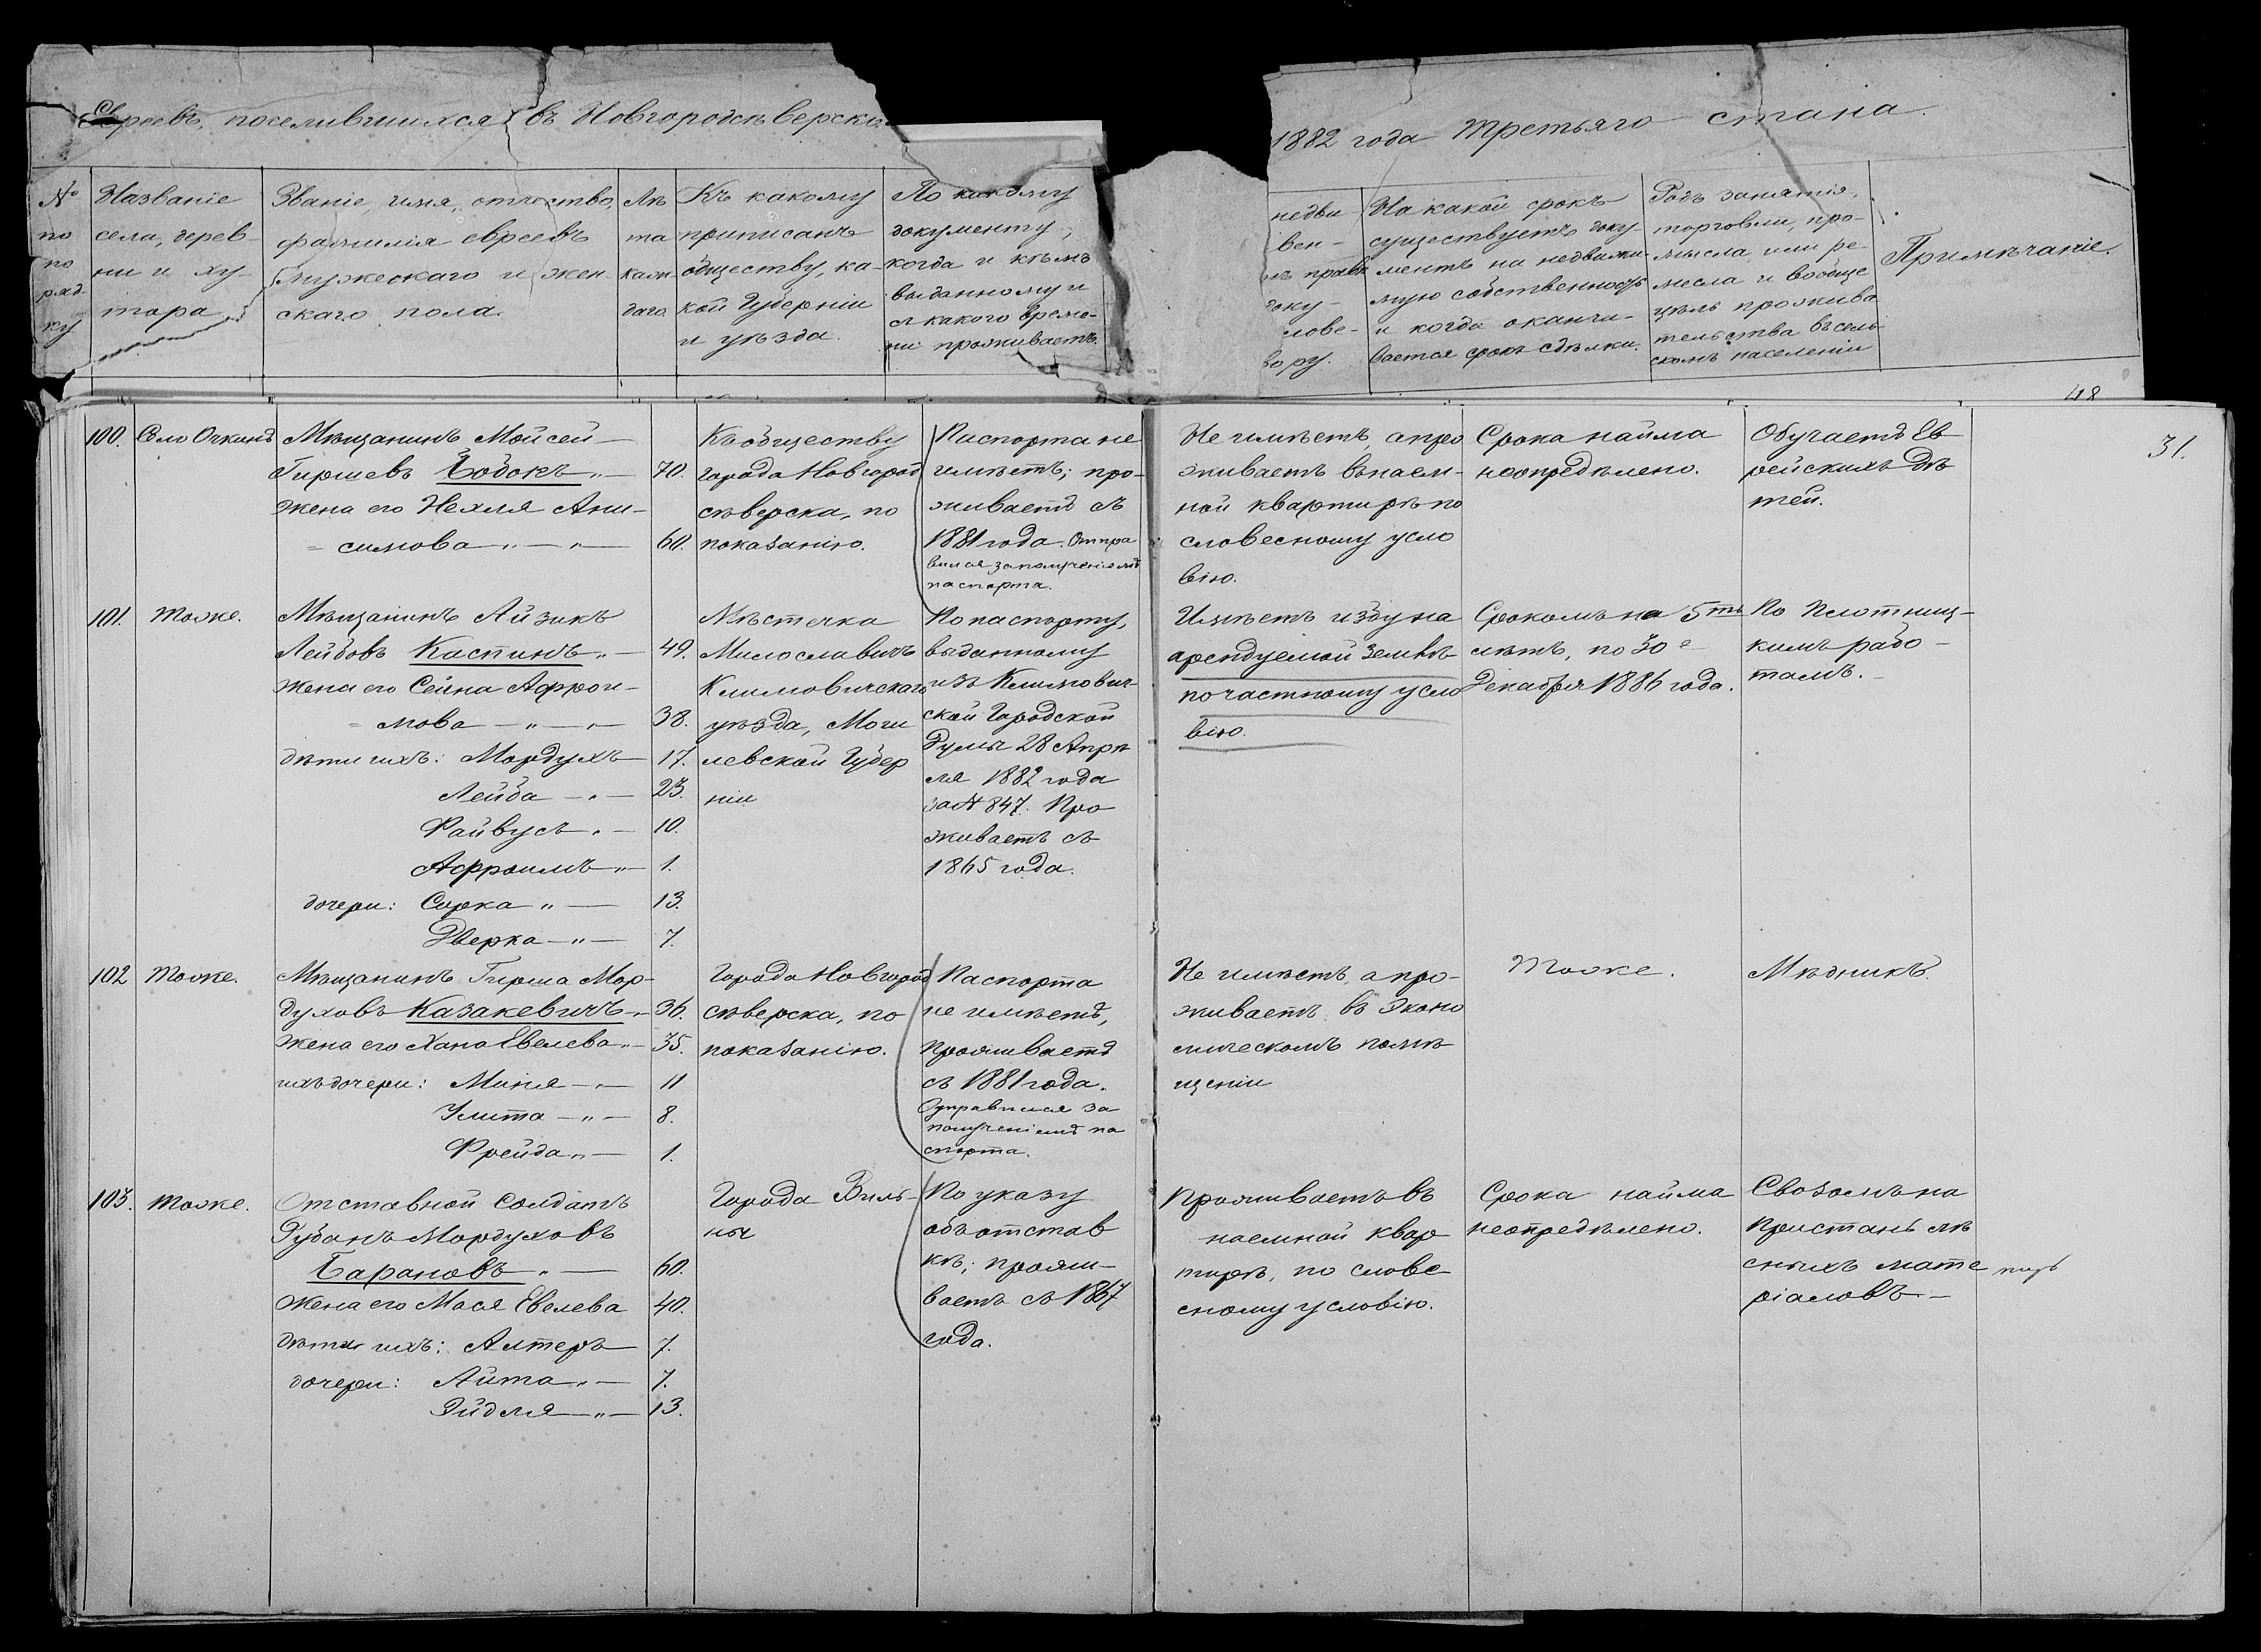 Евреевъ, поселившихся въ Новгородсѣверско
1882 года Третьяго стана.
№
по
по
ряд
ку
Названіе
села, дерев-
ни и ху-
тора
Званіе, имя, отчество,
фамилія евреевъ
мужескаго и жен-
скаго пола.
Лѣ
та
кажд
даго
Къ какому
приписанъ
обществу, ка-
кой Губерніи
и уѣзда.
По какому
документу,
когда и кѣмъ
выданному и
съ какого време-
ни проживаетъ.
недви-
вен-
правѣ
доку-
слове-
вору.
На какой срокъ
существуетъ доку-
ментъ на недвижи-
мую собственность
и когда оканчи-
вается срокъ сдѣлки.
Родъ занятія,
торговли, про-
мысла или ре-
месла и вообще
цѣль прожива
тельства въ сель
скомъ населеніи
Примѣчаніе.
48
31.
100.
Село Очкинъ
Мѣщанинъ Мойсей
Гиршевъ Бобокъ
70.
жена его Нехля Ани-
симова
60.
Къ обществу
города Новгород
сѣверска, по
показанію.
Паспорта не
имѣетъ; про-
живаетъ съ
1881 года. Отпра
вился за полученіемъ
паспорта.
Не имѣетъ, а про
живаетъ въ наем-
ной квартирѣ по
словесному усло
вію.
Срока найма
неопредѣлено.
Обучаетъ Ев
рейскихъ дѣ
тей.
101.
Тоже.
Мѣщанинъ Айзикъ
Лейбовъ Каспинъ
49.
жена его Сейна Афрои-
мова
38.
дѣти ихъ: Мордухъ
17.
Лейба
23.
Файвусъ
10.
Афроимъ
1.
дочери: Сорка
13.
Дверка
7.
Мѣстечка
Милославичъ
Климовичскаго
уѣзда, Моги
левской Губер
ніи
По паспорту,
выданному
изъ Климович-
ской Городской
Думы 28 Апрѣ
ля 1882 года
за № 847. Про
живаетъ съ
1865 года.
Имѣетъ избу на
арендуемой землѣ
по частному усло
вію.
Срокомъ на 5ть
лѣтъ, по 30е
Декабря 1886 года.
По плотниц-
кимъ рабо-
тамъ.
102
Тоже.
Мѣщанинъ Гирша Мор-
духовъ Казакевичъ
36.
жена его Хана Евелева
35.
ихъ дочери: Миня
11
Улита
8.
Фрейда
1.
Города Новгород
сѣверска, по
показанію.
Паспорта
не имѣетъ,
проживаетъ
съ 1881 года.
Отправился за
полученіемъ па
спорта.
Не имѣетъ, а про-
живаетъ въ эконо
мическомъ помѣ
щеніи
Тоже.
Мѣдникъ.
103.
Тоже.
Отставной Солдатъ
Рубанъ Мордуховъ
Барановъ
60.
Жена его Мася Евелева
40.
дѣти ихъ: Алтеръ
7.
дочери: Айта
7.
Эйдля
13.
Города Виль-
ны
По указу
объ отстав
кѣ; прожи-
ваетъ съ 1867
года.
Проживаетъ въ
наемной квар
тирѣ, по слове
сному условію.
Срока найма
неопредѣлено.
Своломъ на
Пристань лѣ
сныхъ мате
ріаловъ